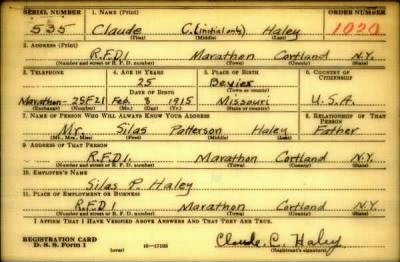 SERIAL NUMBER 1. NAME (Print) ORDER NUMBER
535 Claude C.(initial only) Haley 1020
(First) (Middle) (Last)
2. ADDRESS (Print)
R.F.D.1 Marathon Cortland N.Y.
(Number and street or R. F. D. number) (Town) (County) (State)
3. TELEPHONE 4. AGE IN YEARS 5. PLACE OF BIRTH 6. COUNTRY OF CITIZENSHIP
25 Bevier
DATE OF BIRTH (Town or county)
Marathon-25F21 Feb. 8 1915 Missouri U.S.A.
(Exchange) (No.) (Mo.) (Day) (Yr.) (State or country)
7. NAME OF PERSON WHO WILL ALWAYS KNOW YOUR ADDRESS 8. RELATIONSHIP OF THAT PERSON
Mr. Silas Patterson Haley Father
(Mr., Mrs., Miss) (First) (Middle) (Last)
9. ADDRESS OF THAT PERSON
R.F.D1. Marathon Cortland N.Y.
(Number and street or R. F. D. number) (Town) (County) (State)
10. EMPLOYER'S NAME
Silas P. Haley
11. PLACE OF EMPLOYMENT OR BUSINESS
R.F.D1 Marathon Cortland N.Y.
(Number and street or R. F. D. number) (Town) (County) (State)
I AFFIRM THAT I HAVE VERIFIED ABOVE ANSWERS AND THAT THEY ARE TRUE.
REGISTRATION CARD
D. S. S. Form 1 (over) 16—17105 Claude. C. Haley
(Registrant's signature)